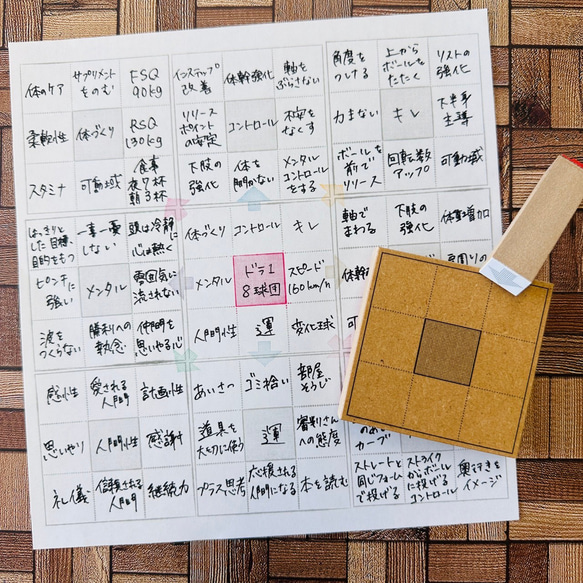 体のケア
サプリメント
をのむ
FSQ
90kg
柔軟性
体づくり
RSQ
130kg
スタミナ
可動域
食事
夜7杯
朝3杯
インステップ
改善
体幹強化
軸を
ぶらさない
リリース
ポイント
の安定
コントロール
不安を
なくす
下肢の
強化
体を
開かない
メンタル
コントロール
をする
角度を
つける
上から
ボールを
たたく
リストの
強化
力まない
キレ
下半身
主導
ボールを
前で
リリース
回転数
アップ
可動域
はっきりと
した目標、
目的をもつ
一喜一憂
しない
頭は冷静に
心は熱く
ピンチに
強い
メンタル
雰囲気に
流されない
波を
つくらない
勝利への
執念
仲間を
思いやる心
体づくり
コントロール
キレ
メンタル
ドラ1
8球団
スピード
160km/h
人間性
運
変化球
軸で
まわる
下肢の
強化
体重増加
体幹
可
感性
愛される
人間
計画性
思いやり
人間性
感謝
礼儀
信頼される
人間
継続力
あいさつ
ゴミ拾い
部屋
そうじ
道具を
大切に使う
運
審判さん
への態度
プラス思考
応援される
人間になる
本を読む
カーブ
ストレートと
同じフォーム
で投げる
ストライク
からボール
に投げる
コントロール
奥行きを
イメージ